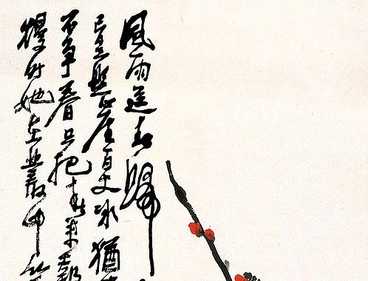 風雨送春歸
已是懸崖百丈冰猶
不争春只把春来報
熳时她在叢中